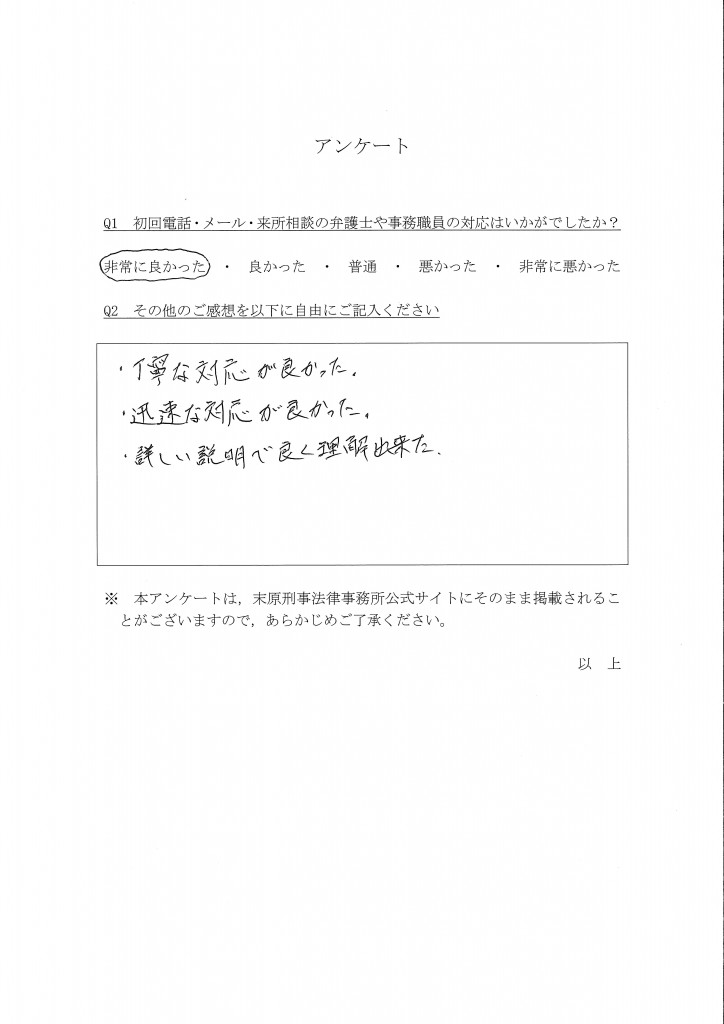 アンケート
Q1　初回電話・メール・来所相談の弁護士や事務職員の対応はいかがでしたか？
非常に良かった　・　良かった　・　普通　・　悪かった　・　非常に悪かった
Q2　その他のご感想を以下に自由にご記入ください
・丁寧な対応が良かった。
・迅速な対応が良かった。
・詳しい説明で良く理解出来た.
※　本アンケートは，末原刑事法律事務所公式サイトにそのまま掲載されるこ
とがございますので，あらかじめご了承ください。
以　上